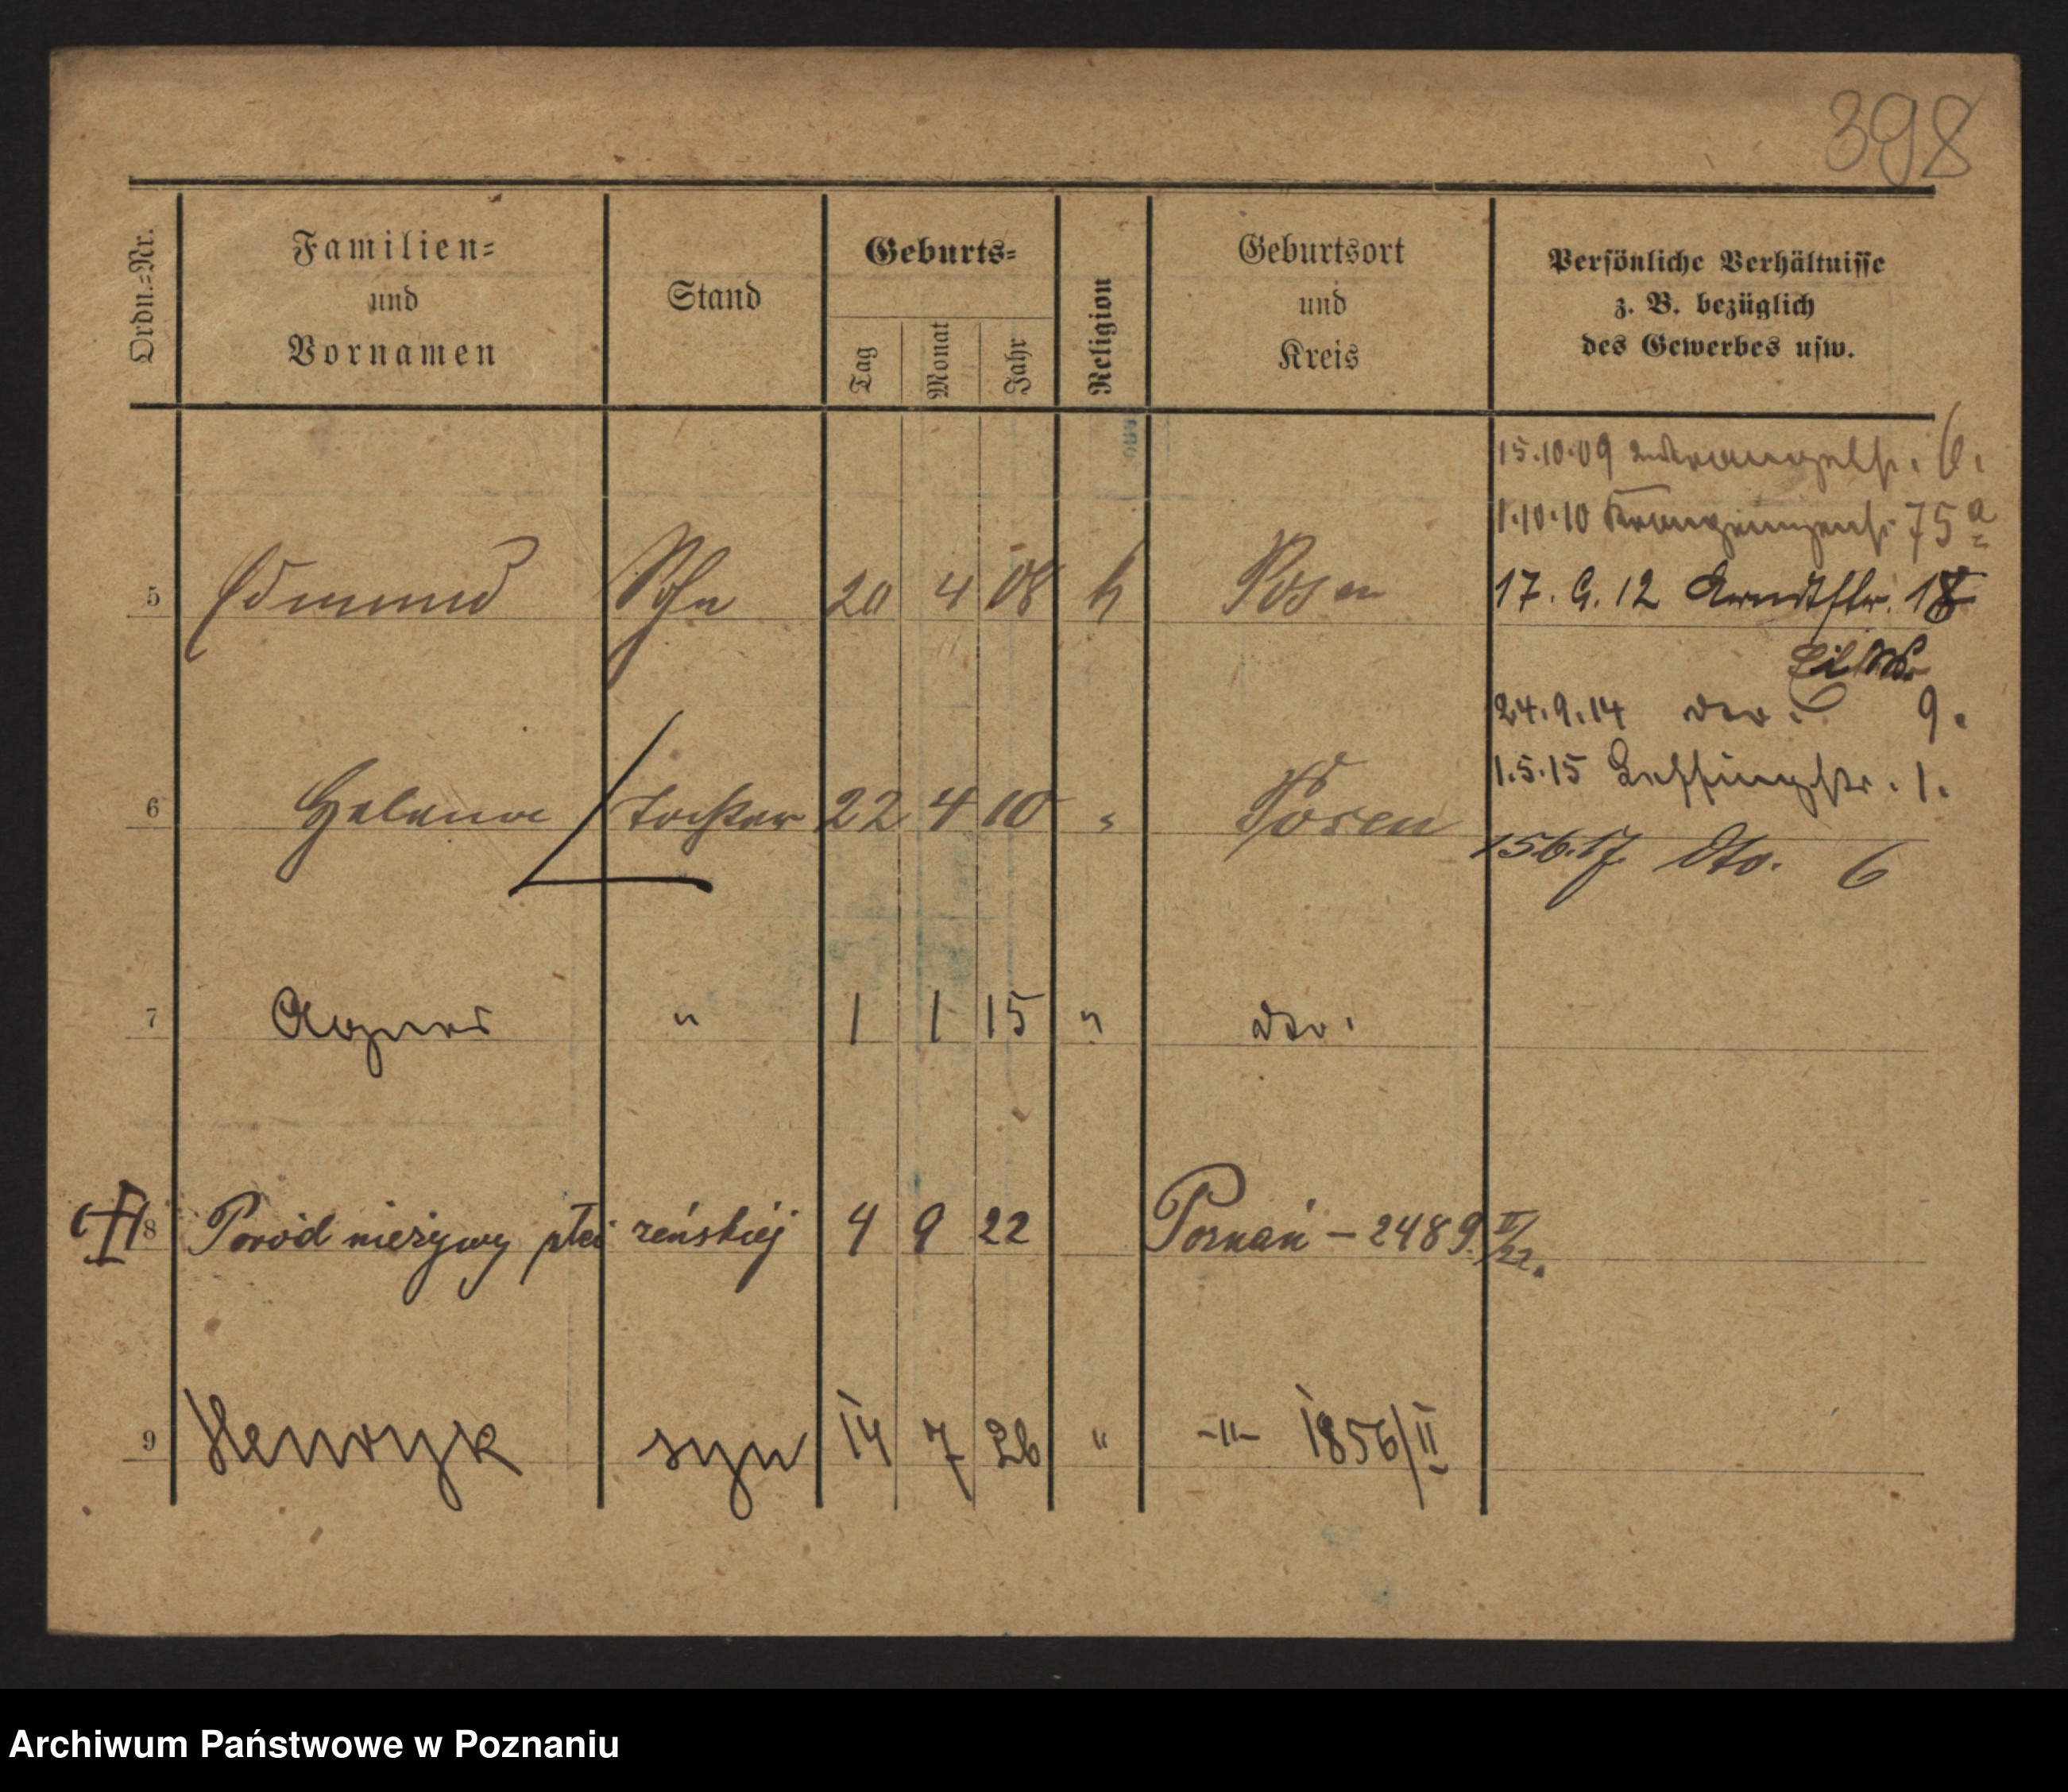 398
Ordn.-Nr.
Familien-
und
Vornamen
Stand
Geburts-
Tag
Monat
Jahr
Religion
Geburtsort
und
Kreis
Persönliche Verhältnisse
z. B. bezüglich
des Gewerbes usw.
15.10.09 6.
1.10.10 75a
5 Edmund Sohn 20 4 08 k Posen 17. 9. 12 Arndtstr. 18
24.9.14 dto. 9.
1.5.15 Lessingstr. 1.
6 Helene Tochter 22 4 10 " Posen
15.6.17. dto. 6
7 Agnes " 1 1 15 " dto.
8 Poród nieżywy płci żeńskiej 4 9 22 Poznań – 2489 II/22.
9 Henryk syn 14 7 26 " -"- 1856/II
Archiwum Państwowe w Poznaniu